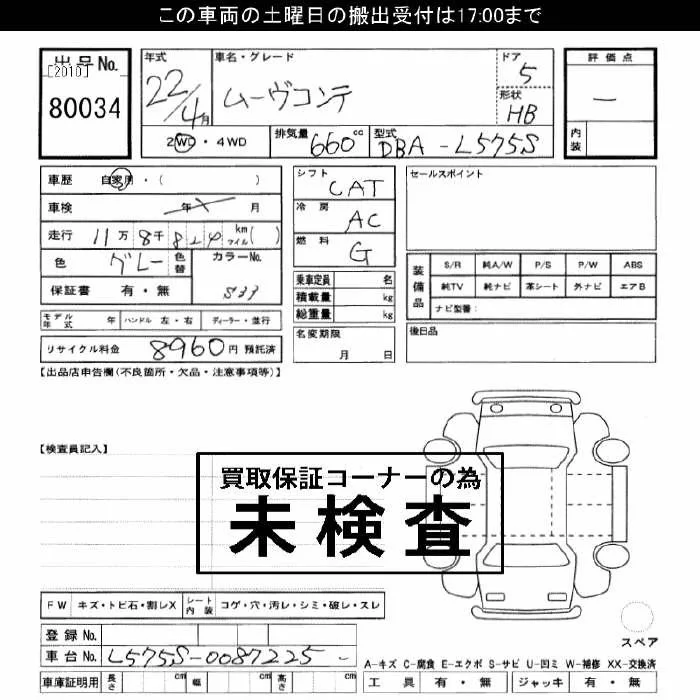 この車両の土曜日の搬出受付は17:00まで
出品No.
[2010]
80034
年式
22/4月
車名・グレード
ムーヴコンテ
ドア
5
形状
HB
2WD・4WD
排気量
660 cc
型式
DBA-L575S
評価点
―
内装
車歴 自家用・( )
車検 年 月
走行 11万8千824 km マイル( )
色 グレー 色替
カラーNo.
S39
保証書 有・無
モデル年式 年 ハンドル 左・右 ディーラー・並行
リサイクル料金 8960円 預託済
シフト
CAT
冷房
AC
燃料
G
乗車定員 名
積載量 kg
総重量 kg
名変期限
月 日
セールスポイント
装備品
S/R 純A/W P/S P/W ABS
純TV 純ナビ 革シート 外ナビ エアB
ナビ型番:
後日品
【出品店申告欄(不良箇所・欠品・注意事項等)】
【検査員記入】
買取保証コーナーの為
未検査
FW キズ・トビ石・割レX シート内装 コゲ・穴・汚レ・シミ・破レ・スレ
登録No.
車台No. L575S-0087225-
車庫証明用 長さ cm 幅 cm 高さ cm
スペア
A-キズ C-腐食 E-エクボ S-サビ U-凹ミ W-補修 XX-交換済
工具 有・無 ジャッキ 有・無